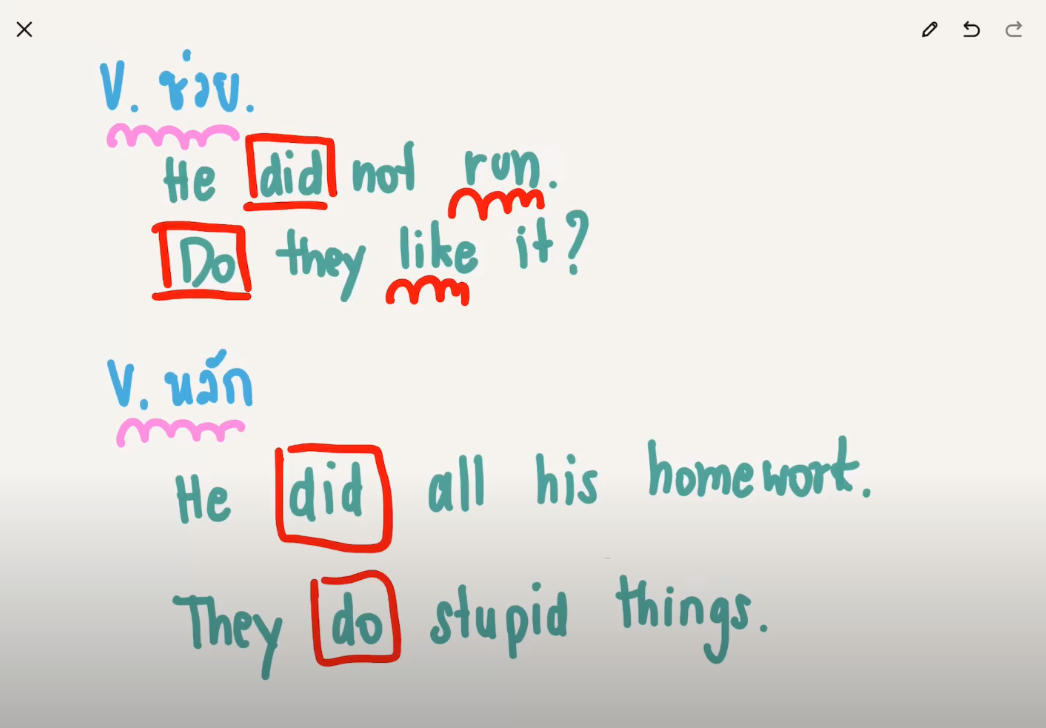 V. ช่วย.
He did not run.
Do they like it?
V. หลัก
He did all his homework.
They do stupid things.